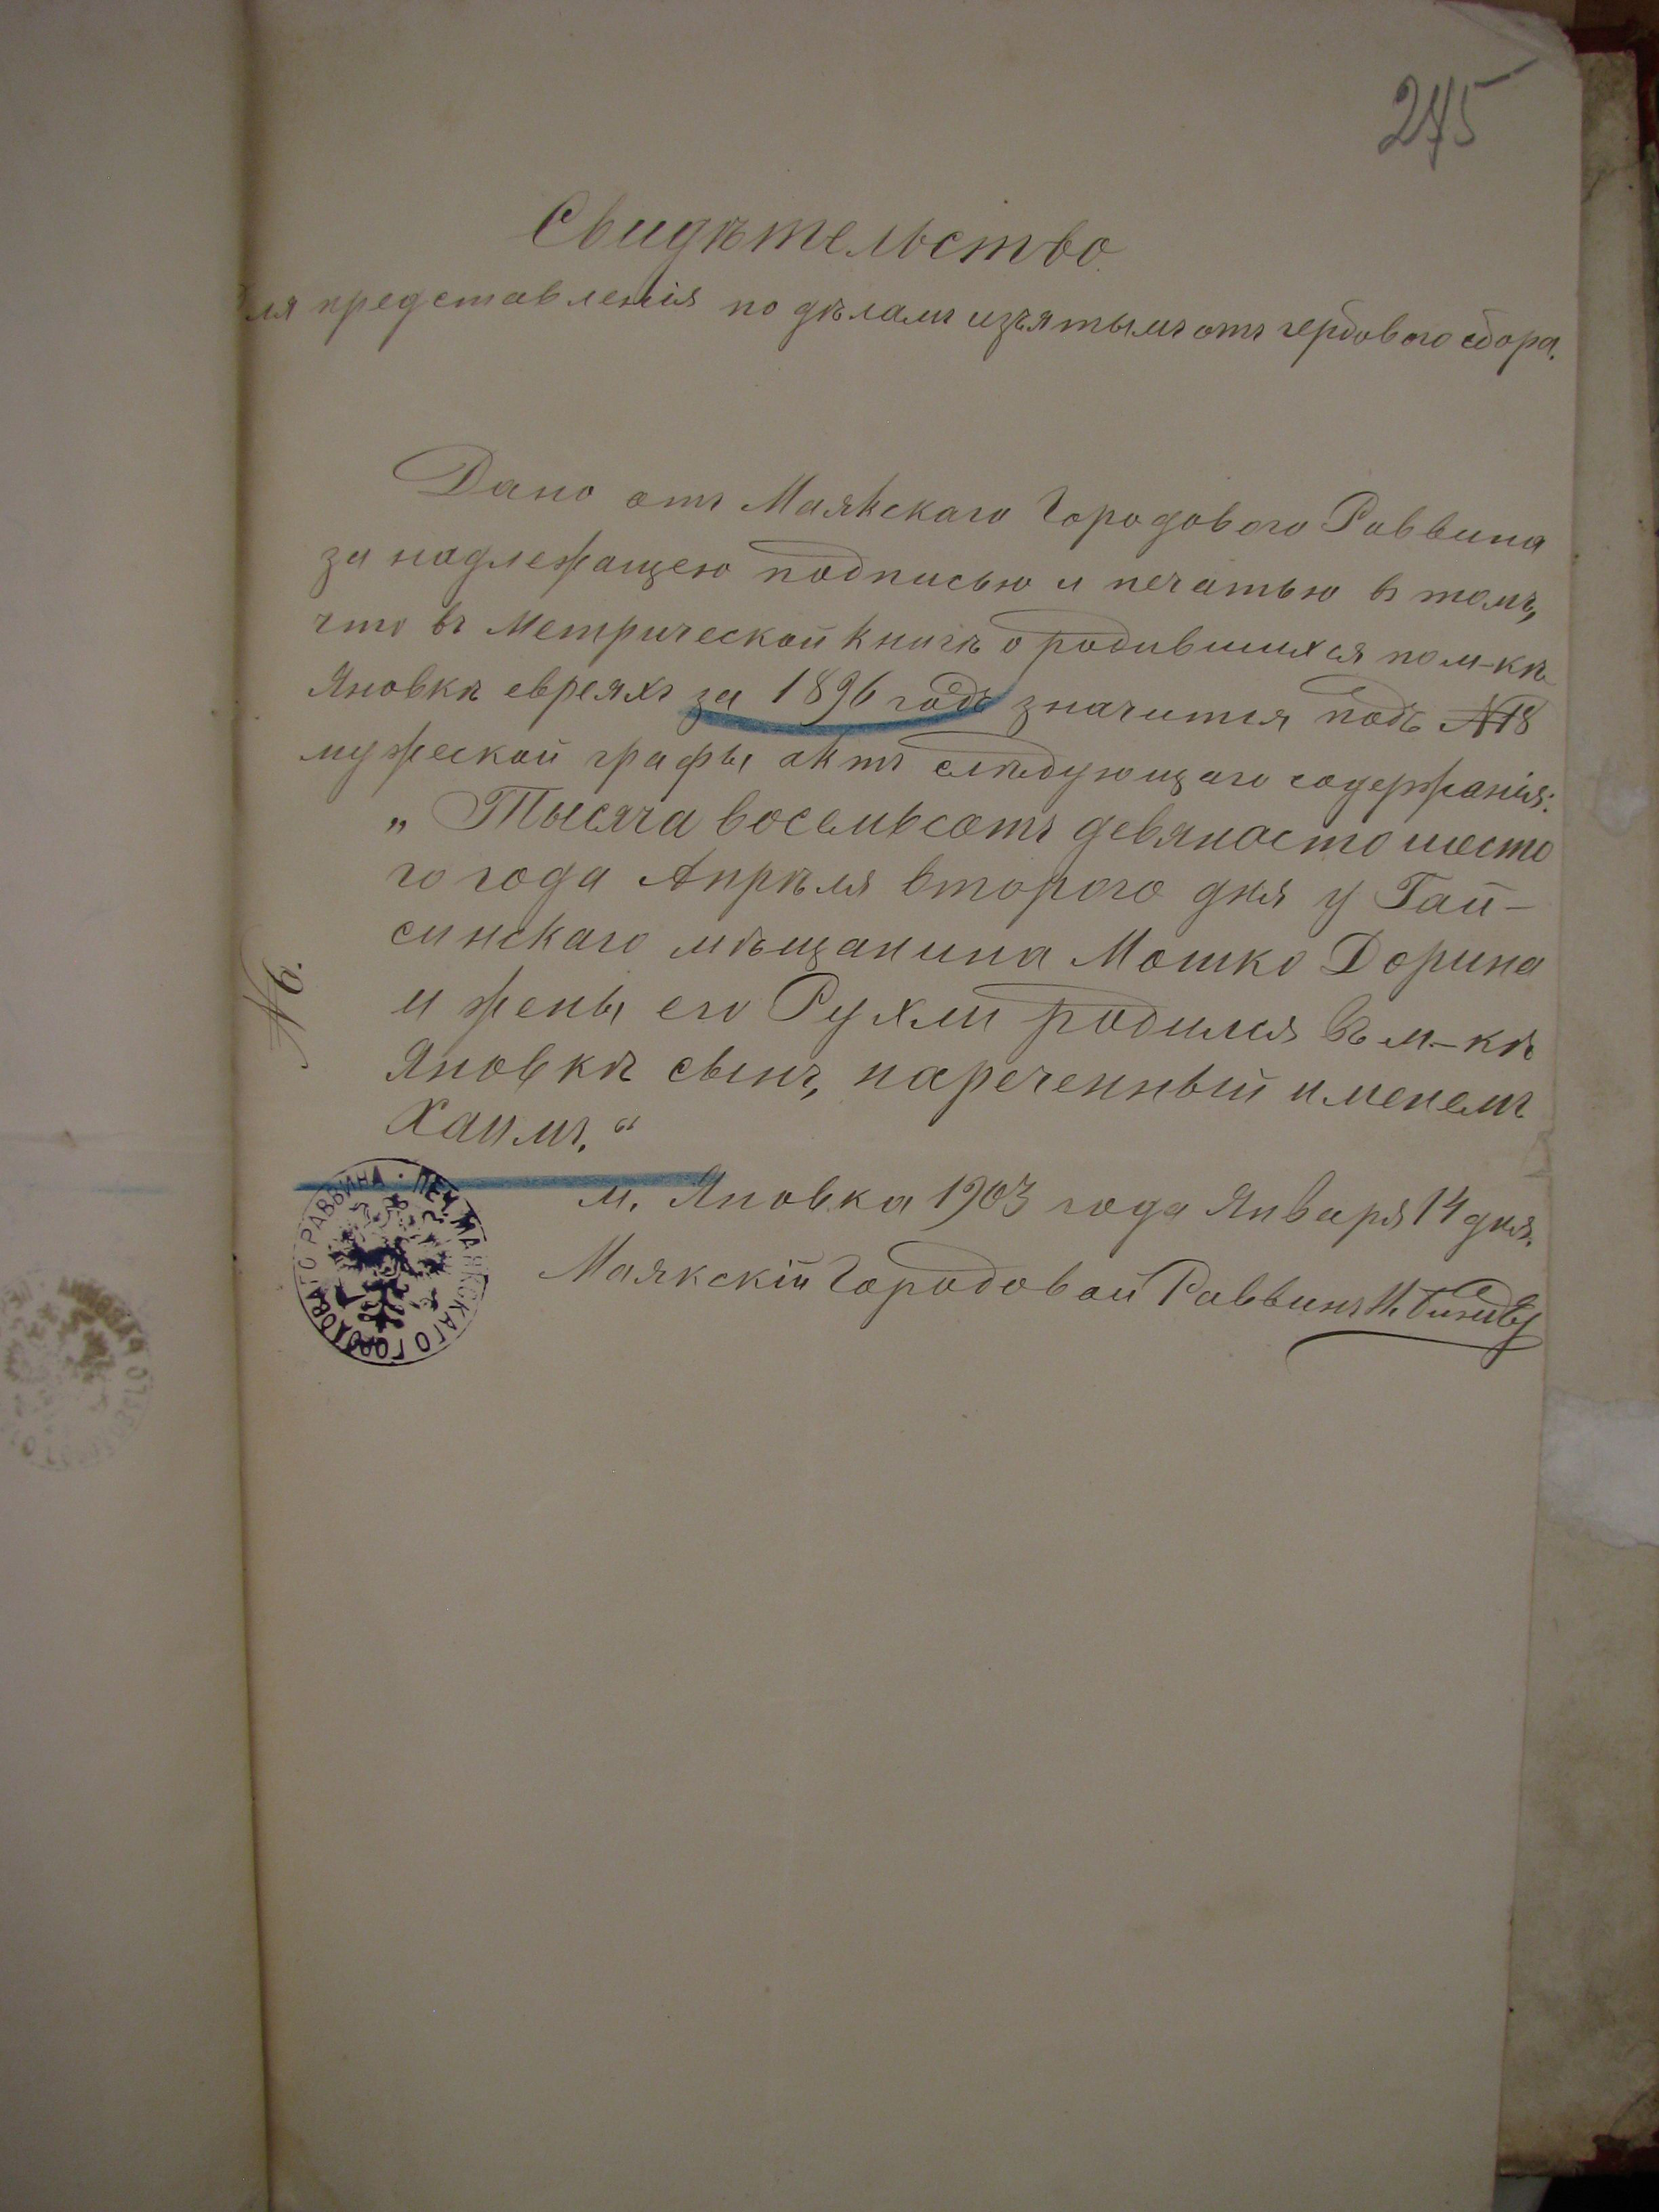 245
Свидѣтельство
для представленія по дѣламъ изъятымъ отъ гербового сбора.
Дано отъ Маякскаго Городового Раввина
за надлежащею подписью и печатью въ томъ,
что въ Метрической книгѣ о родившихся по м-кѣ
Яновкѣ евреяхъ за 1896 годъ значится подъ №18
мужеской графы актъ слѣдующаго содержанія:
„Тысяча восемьсотъ девяносто шесто
го года Апрѣля второго дня у Гай-
синскаго мѣщанина Мошко Дорина
и жены его Рухли родился въ м-кѣ
Яновкѣ сынъ, нареченный именемъ
Хаимъ.“
№ 6.
м. Яновка 1903 года Января 14 дня.
Маякскій Городовой Раввинъ
ПЕЧ. МАЯКСКАГО ГОРОДОВАГО РАВВИНА